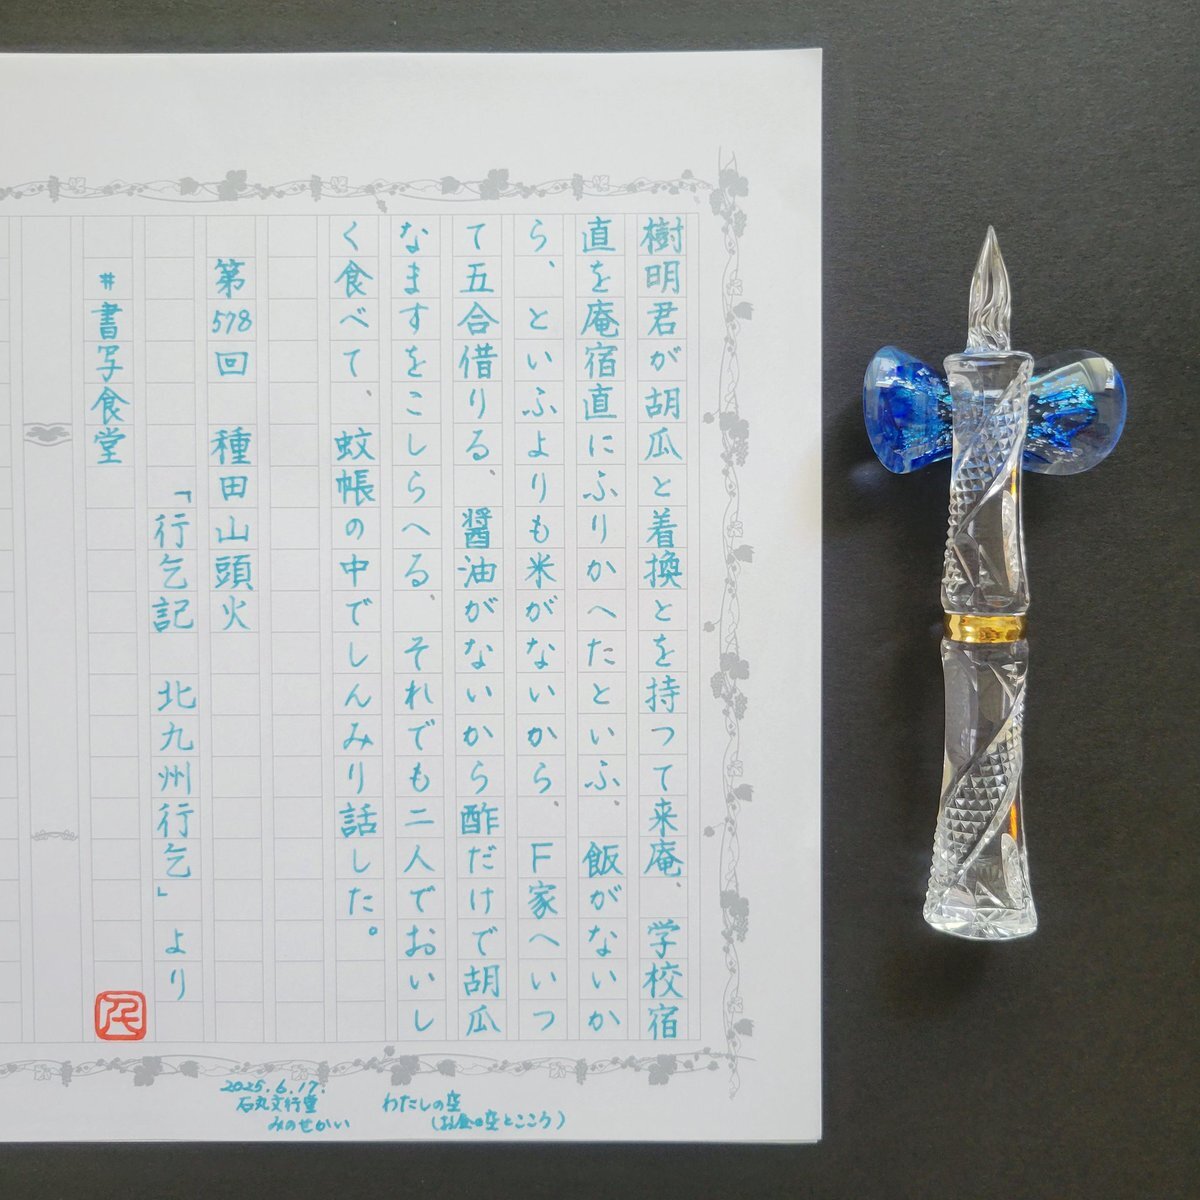 樹明君が胡瓜と着換とを持つて来庵、学校宿
直を庵宿直にふりかへたといふ、飯がないか
ら、といふよりも米がないから、F家へいつ
て五合借りる、醤油がないから酢だけで胡瓜
なますをこしらへる、それでも二人でおいし
く食べて、蚊帳の中でしんみり話した。
第578回 種田山頭火
「行乞記 北九州行乞」より
#書写食堂
2025.6.17.
石丸文行堂
みのせかい
わたしの空